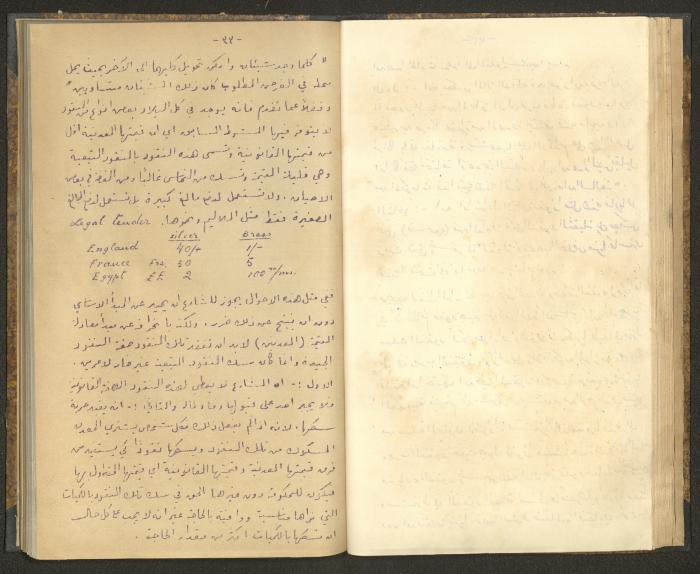 - ٣٣ -
" كلما وجد شيئان وامكن تحويل كليهما الى الآخر بحيث يحل
محله في الغرض المطلوب كان ذلك الشيئان متساويين "
وفضلاً عما تقدم فانه يوجد في كل البلاد بعض انواع من النقود
لا يتوفر فيها الشرط السابق اي ان قيمتها المعدنية اقل
من قيمتها القانونية وتسمى هذه النقود بالنقود التبعية
وهي قليلة القيمة وتسك من النحاس غالباً ومن الفضة في بعض
الاحيان . ولا تستعمل لدفع مبالغ كبيرة بل تستعمل لدفع المبالغ
الصغيرة فقط مثل الملاليم ونحوها . Legal tender
silver Brass
England 40/- 1/-
France Frs. 50 5
Egypt £E. 2 100 m/ms.
ففي مثل هذه الاحوال يجوز للشارع ان يحيد عن المبدأ الاساسي
دون ان ينتج عن ذلك ضرر . ولكنه بانحرافه عن مبدأ معادلة
القيمة (المعدنين) لابد ان تفقد تلك النقود صفة النقود
الجيدة وانما كان سك النقود التبعية غير ضار لامرين .
الاول :- ان الشارع لا يعطى لهذه النقود الصفة القانونية
فلا يجبر احد على قبولها وفاء لماله والثاني :- انه يقيد حرية
سكها . لانه اذا لم يفعل ذلك فكل شخص يشتري المعدن
المسكوك من تلك النقود ويسكها نقوداً كي يستفيد من
فرق قيمتها المعدنية وقيمتها القانونية اي قيمتها المتداول بها
فيكون للحكومة دون غيرها الحق في سك تلك النقود بالكميات
التي تراها مناسبة ووافية بالحاجة غير انه لا يجب على كل حال
ان تسكها بالكميات اكثر من مقدار الحاجة .